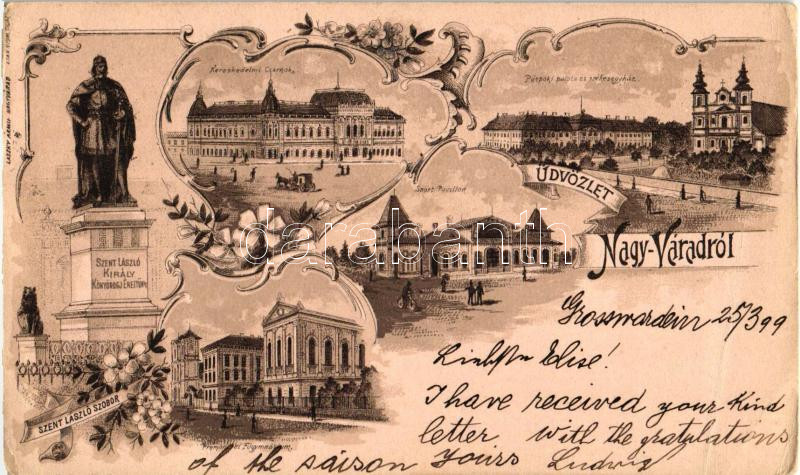 Kereskedelmi Csarnok.
Püspöki palota és székesegyház.
ÜDVÖZLET
Nagy-Váradról
Sport Pavillon
SZENT LÁSZLÓ
KIRÁLY
KÖNYÖRÖGJ ÉRETTÜNK
SZENT LÁSZLÓ SZOBOR
Főgymnasium.
darabanth.com
Grosswardein 25/3 99
Liebste Elise!
I have received your kind
letter with the gratulations
of the saison Yours Ludwig